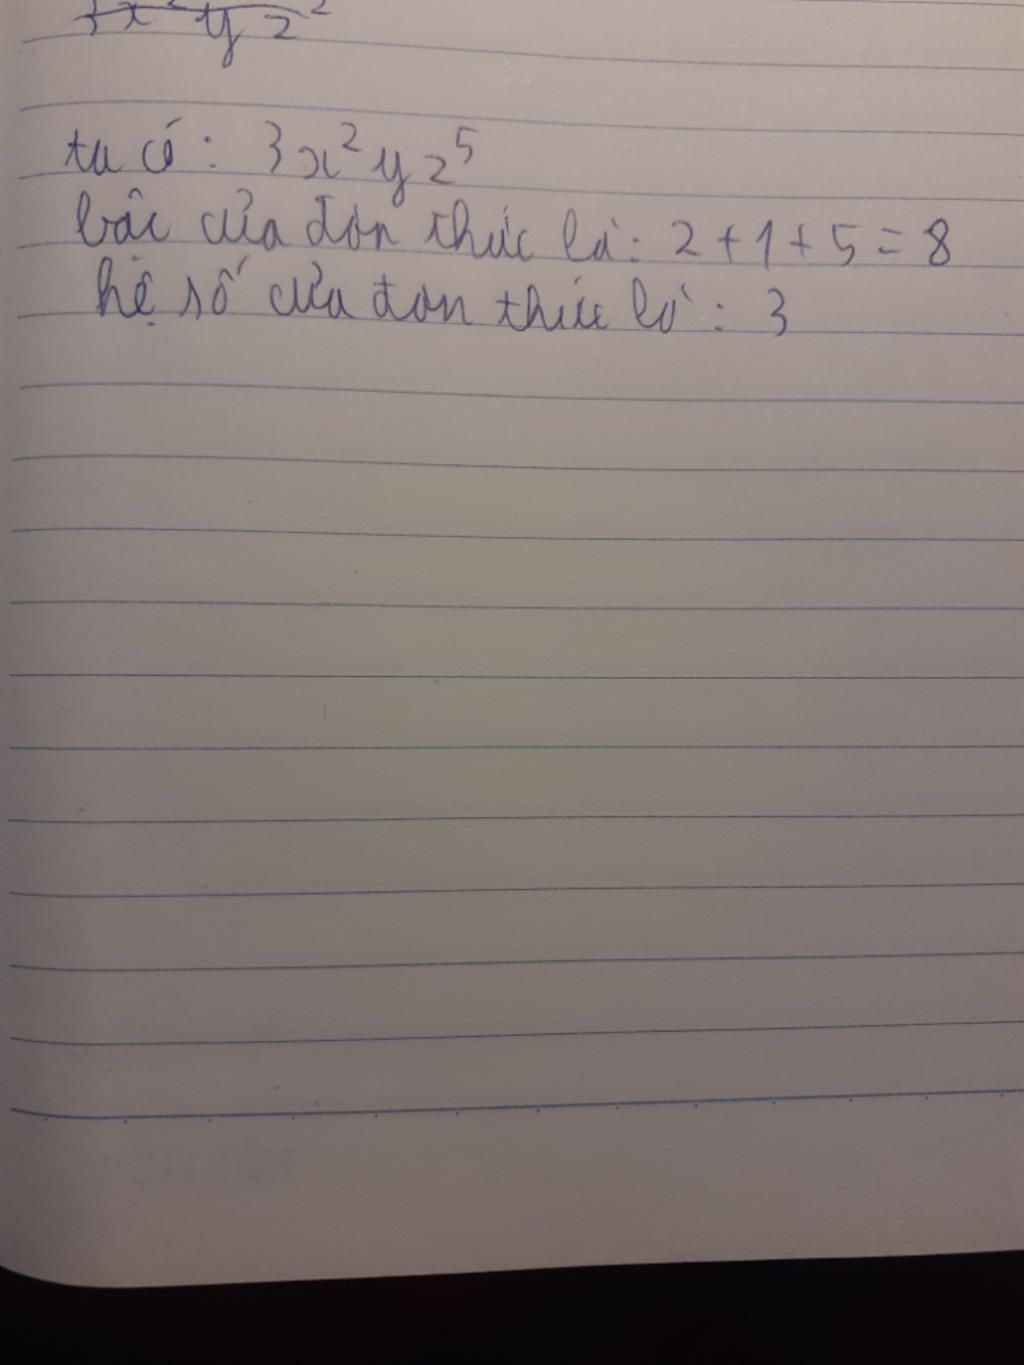 3x²yz²
ta có: 3x²yz⁵
bậc của đơn thức là: 2+1+5=8
hệ số của đơn thức là: 3